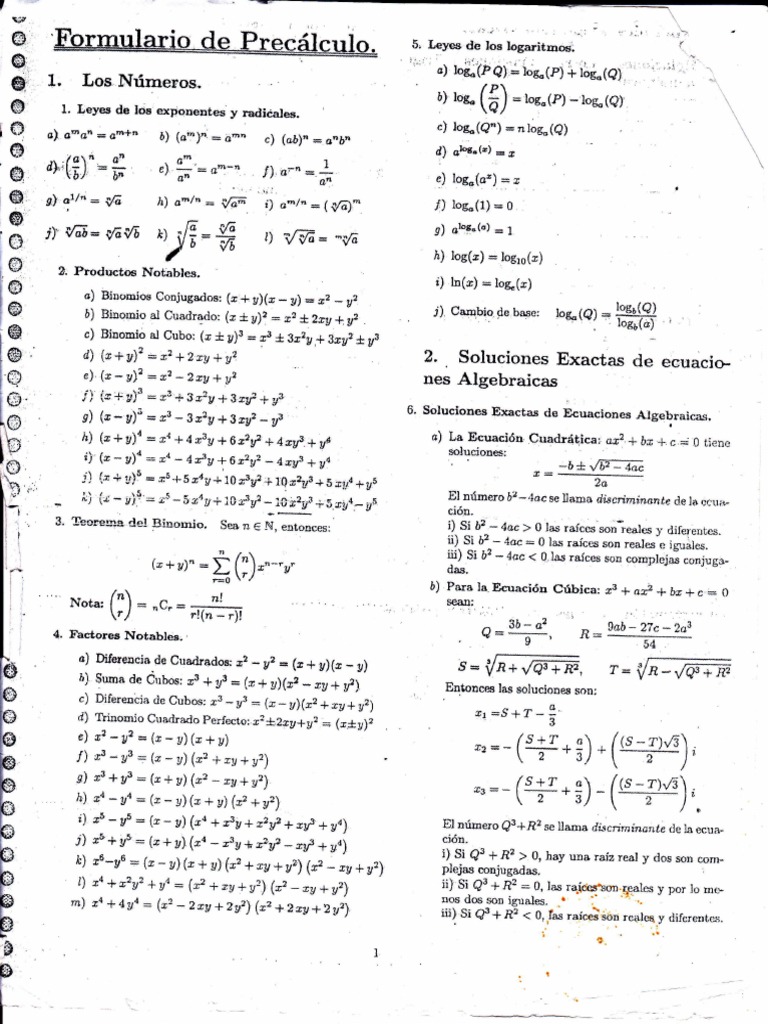 Formulario de Precálculo.
1. Los Números.
1. Leyes de los exponentes y radicales.
a) a^m a^n = a^{m+n} b) (a^m)^n = a^{mn} c) (ab)^n = a^n b^n
d) (a/b)^n = a^n/b^n e) a^m/a^n = a^{m−n} f) a^{−n} = 1/a^n
g) a^{1/n} = ⁿ√a h) a^{m/n} = ⁿ√(a^m) i) a^{m/n} = (ⁿ√a)^m
j) ⁿ√(ab) = ⁿ√a ⁿ√b k) ⁿ√(a/b) = ⁿ√a/ⁿ√b l) ᵐ√(ⁿ√a) = ᵐⁿ√a
2. Productos Notables.
a) Binomios Conjugados: (x + y)(x − y) = x² − y²
b) Binomio al Cuadrado: (x ± y)² = x² ± 2xy + y²
c) Binomio al Cubo: (x ± y)³ = x³ ± 3x²y + 3xy² ± y³
d) (x + y)² = x² + 2xy + y²
e) (x − y)² = x² − 2xy + y²
f) (x + y)³ = x³ + 3x²y + 3xy² + y³
g) (x − y)³ = x³ − 3x²y + 3xy² − y³
h) (x + y)⁴ = x⁴ + 4x³y + 6x²y² + 4xy³ + y⁴
i) (x − y)⁴ = x⁴ − 4x³y + 6x²y² − 4xy³ + y⁴
j) (x + y)⁵ = x⁵ + 5x⁴y + 10x³y² + 10x²y³ + 5xy⁴ + y⁵
k) (x − y)⁵ = x⁵ − 5x⁴y + 10x³y² − 10x²y³ + 5xy⁴ − y⁵
3. Teorema del Binomio. Sea n ∈ ℕ, entonces:
(x + y)^n = ∑_{r=0}^{n} (n r) x^{n−r} y^r
Nota: (n r) = ₙCᵣ = n!/(r!(n − r)!)
4. Factores Notables.
a) Diferencia de Cuadrados: x² − y² = (x + y)(x − y)
b) Suma de Cubos: x³ + y³ = (x + y)(x² − xy + y²)
c) Diferencia de Cubos: x³ − y³ = (x − y)(x² + xy + y²)
d) Trinomio Cuadrado Perfecto: x² ± 2xy + y² = (x ± y)²
e) x² − y² = (x − y)(x + y)
f) x³ − y³ = (x − y)(x² + xy + y²)
g) x³ + y³ = (x + y)(x² − xy + y²)
h) x⁴ − y⁴ = (x − y)(x + y)(x² + y²)
i) x⁵ − y⁵ = (x − y)(x⁴ + x³y + x²y² + xy³ + y⁴)
j) x⁵ + y⁵ = (x + y)(x⁴ − x³y + x²y² − xy³ + y⁴)
k) x⁶ − y⁶ = (x − y)(x + y)(x² + xy + y²)(x² − xy + y²)
l) x⁴ + x²y² + y⁴ = (x² + xy + y²)(x² − xy + y²)
m) x⁴ + 4y⁴ = (x² − 2xy + 2y²)(x² + 2xy + 2y²)
5. Leyes de los logaritmos.
a) logₐ(PQ) = logₐ(P) + logₐ(Q)
b) logₐ(P/Q) = logₐ(P) − logₐ(Q)
c) logₐ(Q^n) = n logₐ(Q)
d) a^{logₐ(x)} = x
e) logₐ(a^x) = x
f) logₐ(1) = 0
g) a^{logₐ(a)} = 1
h) log(x) = log₁₀(x)
i) ln(x) = logₑ(x)
j) Cambio de base: logₐ(Q) = log_b(Q)/log_b(a)
2. Soluciones Exactas de ecuacio-
nes Algebraicas
6. Soluciones Exactas de Ecuaciones Algebraicas.
a) La Ecuación Cuadrática: ax² + bx + c = 0 tiene
soluciones:
x = (−b ± √(b² − 4ac))/2a
El número b² − 4ac se llama discriminante de la ecua-
ción.
i) Si b² − 4ac > 0 las raíces son reales y diferentes.
ii) Si b² − 4ac = 0 las raíces son reales e iguales.
iii) Si b² − 4ac < 0 las raíces son complejas conjuga-
das.
b) Para la Ecuación Cúbica: x³ + ax² + bx + c = 0
sean:
Q = (3b − a²)/9, R = (9ab − 27c − 2a³)/54
S = ³√(R + √(Q³ + R²)), T = ³√(R − √(Q³ + R²))
Entonces las soluciones son:
x₁ = S + T − a/3
x₂ = −((S + T)/2 + a/3) + ((S − T)√3/2) i
x₃ = −((S + T)/2 + a/3) − ((S − T)√3/2) i
El número Q³ + R² se llama discriminante de la ecua-
ción.
i) Si Q³ + R² > 0, hay una raíz real y dos son com-
plejas conjugadas.
ii) Si Q³ + R² = 0, las raíces son reales y por lo me-
nos dos son iguales.
iii) Si Q³ + R² < 0, las raíces son reales y diferentes.
1